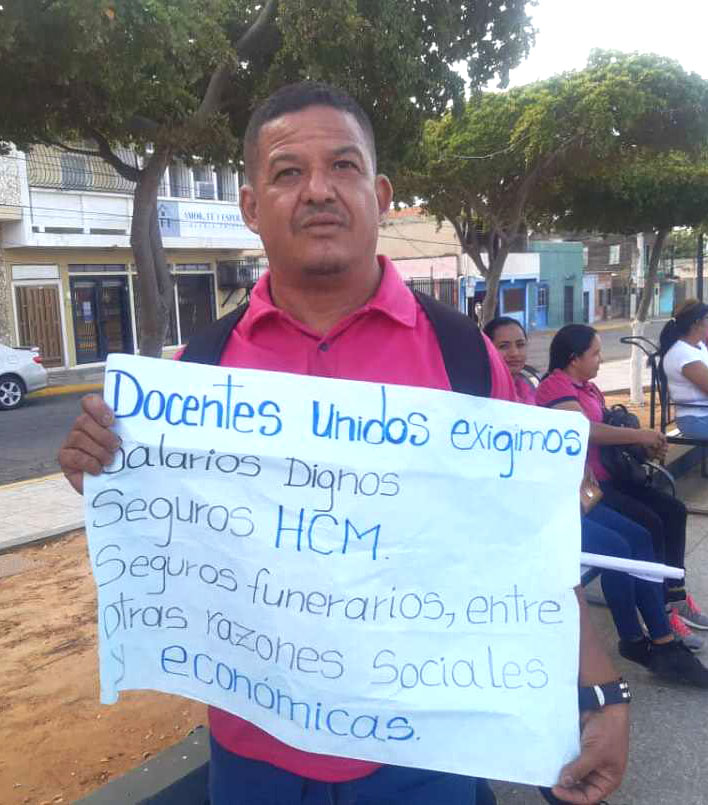 AMOR, FE Y ESPER
Docentes Unidos exigimos
Salarios Dignos
Seguros HCM.
Seguros funerarios, entre
otras razones Sociales
y económicas.